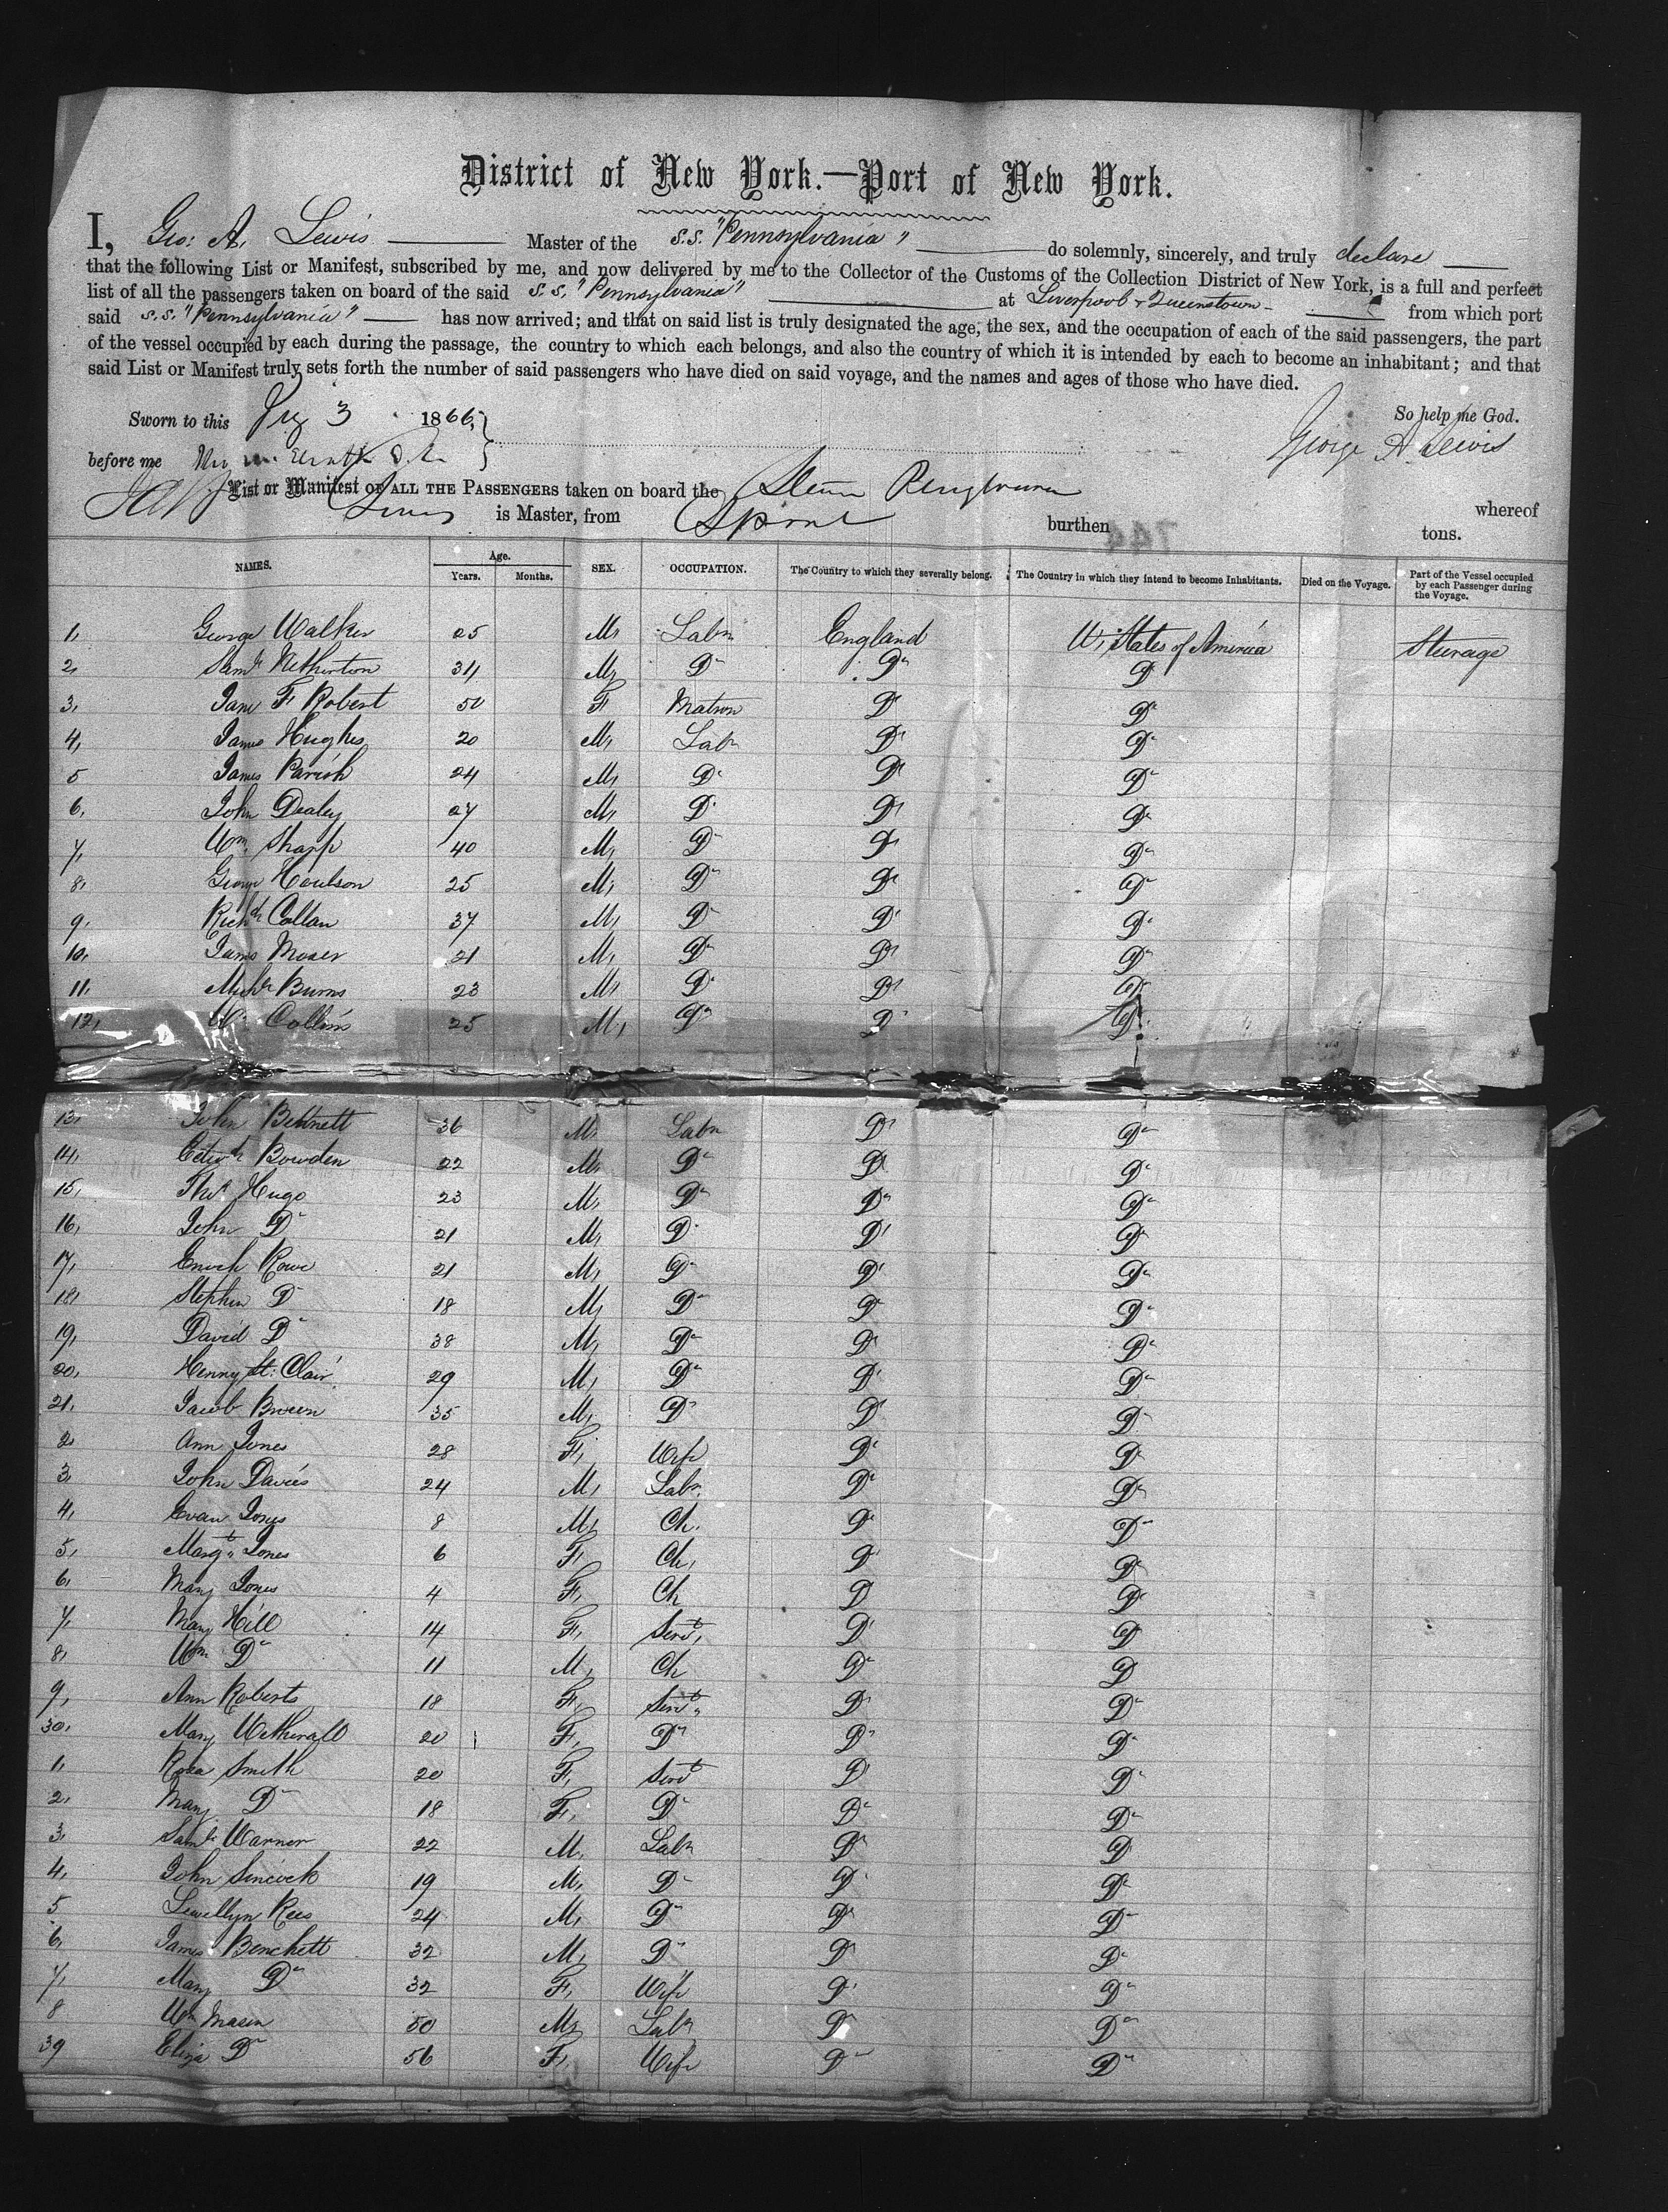 District of New York.—Port of New York.
I, Geo: A. Lewis Master of the S.S. "Pennsylvania" do solemnly, sincerely, and truly declare
that the following List or Manifest, subscribed by me, and now delivered by me to the Collector of the Customs of the Collection District of New York, is a full and perfect
list of all the passengers taken on board of the said S.S. "Pennsylvania" at Liverpool & Queenstown - from which port
said S.S. "Pennsylvania" has now arrived; and that on said list is truly designated the age, the sex, and the occupation of each of the said passengers, the part
of the vessel occupied by each during the passage, the country to which each belongs, and also the country of which it is intended by each to become an inhabitant; and that
said List or Manifest truly sets forth the number of said passengers who have died on said voyage, and the names and ages of those who have died.
So help me God.
Sworn to this 3 1866
George A Lewis
before me
List or Manifest OF ALL THE PASSENGERS taken on board the whereof
Lewis is Master, from burthen tons.
NAMES. Age. Years. Months. SEX. OCCUPATION. The Country to which they severally belong. The Country in which they intend to become Inhabitants. Died on the Voyage. Part of the Vessel occupied by each Passenger during the Voyage.
1, George Walker 25 M, Labr England U, States of America Steerage
2, Saml Netherton 34 M, Do Do Do
3, Jane F, Robert 50 F, Matron Do Do
4, James Hughes 20 M, Labr Do Do
5 James Parish 24 M, Do Do Do
6, John Dealey 27 M, Do Do Do
7, Wm Sharp 40 M, Do Do Do
8, George Coulson 25 M, Do Do Do
9, Richd Callan 37 M, Do Do Do
10, James Moser 21 M, Do Do Do
11, Michl Burns 23 M, Do Do Do
12, Wm Collins 25 M, Do Do Do
13, John Bennett 36 M, Labr Do Do
14, Edwd Bowden 22 M, Do Do Do
15, Thos Hugo 23 M, Do Do Do
16, John Do 21 M, Do Do Do
17, Enoch Rowe 21 M, Do Do Do
18, Stephen Do 18 M, Do Do Do
19, David Do 38 M, Do Do Do
20, Henry St. Clair 29 M, Do Do Do
21, Jacob Breen 35 M, Do Do Do
2, Ann Jones 28 F, Wife Do Do
3, John Davies 24 M, Labr Do Do
4, Evan Jones 8 M, Ch. Do Do
5, Margt Jones 6 F, Ch, Do Do
6, Mary Jones 4 F, Ch Do Do
7, Mary Hill 14 F, Servt, Do Do
8, Wm Do 11 M, Ch Do Do
9, Ann Roberts 18 F, Servt Do Do
30, Mary Wetherall 20 F, Do Do Do
1, Rosa Smith 20 F, Servt Do Do
2, Mary Do 18 F, Do Do Do
3, Saml Warner 22 M, Labr Do Do
4, John Sincock 19 M, Do Do Do
5 Lewellyn Rees 24 M, Do Do Do
6, James Benchett 32 M, Do Do Do
7, Mary Do 32 F, Wife Do Do
8 Wm Masen 50 M, Labr Do Do
39 Eliza Do 56 F, Wife Do Do